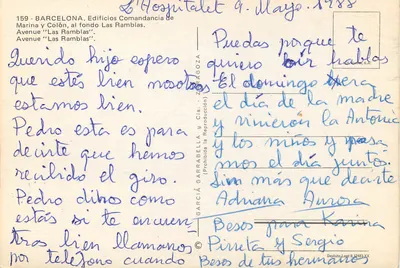 L'Hospitalet 9. Mayo. 1988
159 - BARCELONA. Edificios Comandancia de
Marina y Colón, al fondo Las Ramblas.
Avenue "Las Ramblas".
Avenue "Las Ramblas".
Querido hijo espero
que estés bien nosotros
estamos bien.
Pedro esta es para
decirte que hemos
recibido el giro
Pedro dinos como
estás si te encuen_
tras bien llamanos
por teléfono cuando
GARCIA GARRABELLA y Cía. - ZARAGOZA
(Prohibida la Reproducción)
Puedas porque te
quiero oir hablar
El domingo era
el día de la madre
y vinieron la Antonia
y los niños y pasa
mos el día juntos.
Sin más que decirte
Adriana Aurosa
Besos para Karina
Piruta y Sergio
Besos de tus hermanos